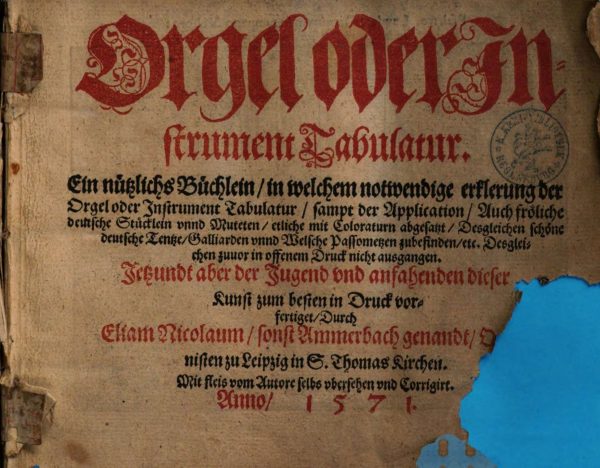 Orgel oder In-
strument Tabulatur.
Ein nützlichs Büchlein / in welchem notwendige erklerung der
Orgel oder Instrument Tabulatur / sampt der Application / Auch fröliche
deutsche Stücklein vnnd Muteten / etliche mit Coloraturn abgesatzt / Desgleichen schöne
deutsche Tentze / Galliarden vnnd Welsche Passometzen zubefinden / etc. Desglei-
chen zuuor in offenem Druck nicht ausgangen.
Jetzundt aber der Jugend vnd anfahenden dieser
Kunst zum besten in Druck vor-
fertiget / Durch
Eliam Nicolaum / sonst Ammerbach genandt /
nisten zu Leipzig in S. Thomas Kirchen.
Mit fleis vom Autore selbs vbersehen vnd Corrigirt.
Anno / 1571.